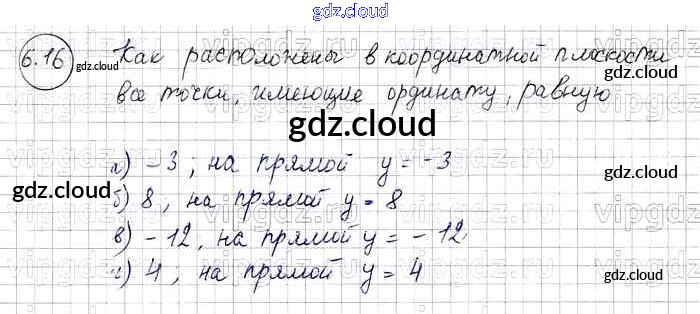 gdz.cloud
6.16 gdz.cloud Как расположены в координатной плоскости
все точки, имеющие ординату, равную
gdz.cloud
а) -3; на прямой y = -3
gdz.cloud
б) 8, на прямой y = 8
gdz.cloud
в) -12, на прямой y = -12
г) 4, на прямой y = 4
gdz.cloud
gdz.cloud